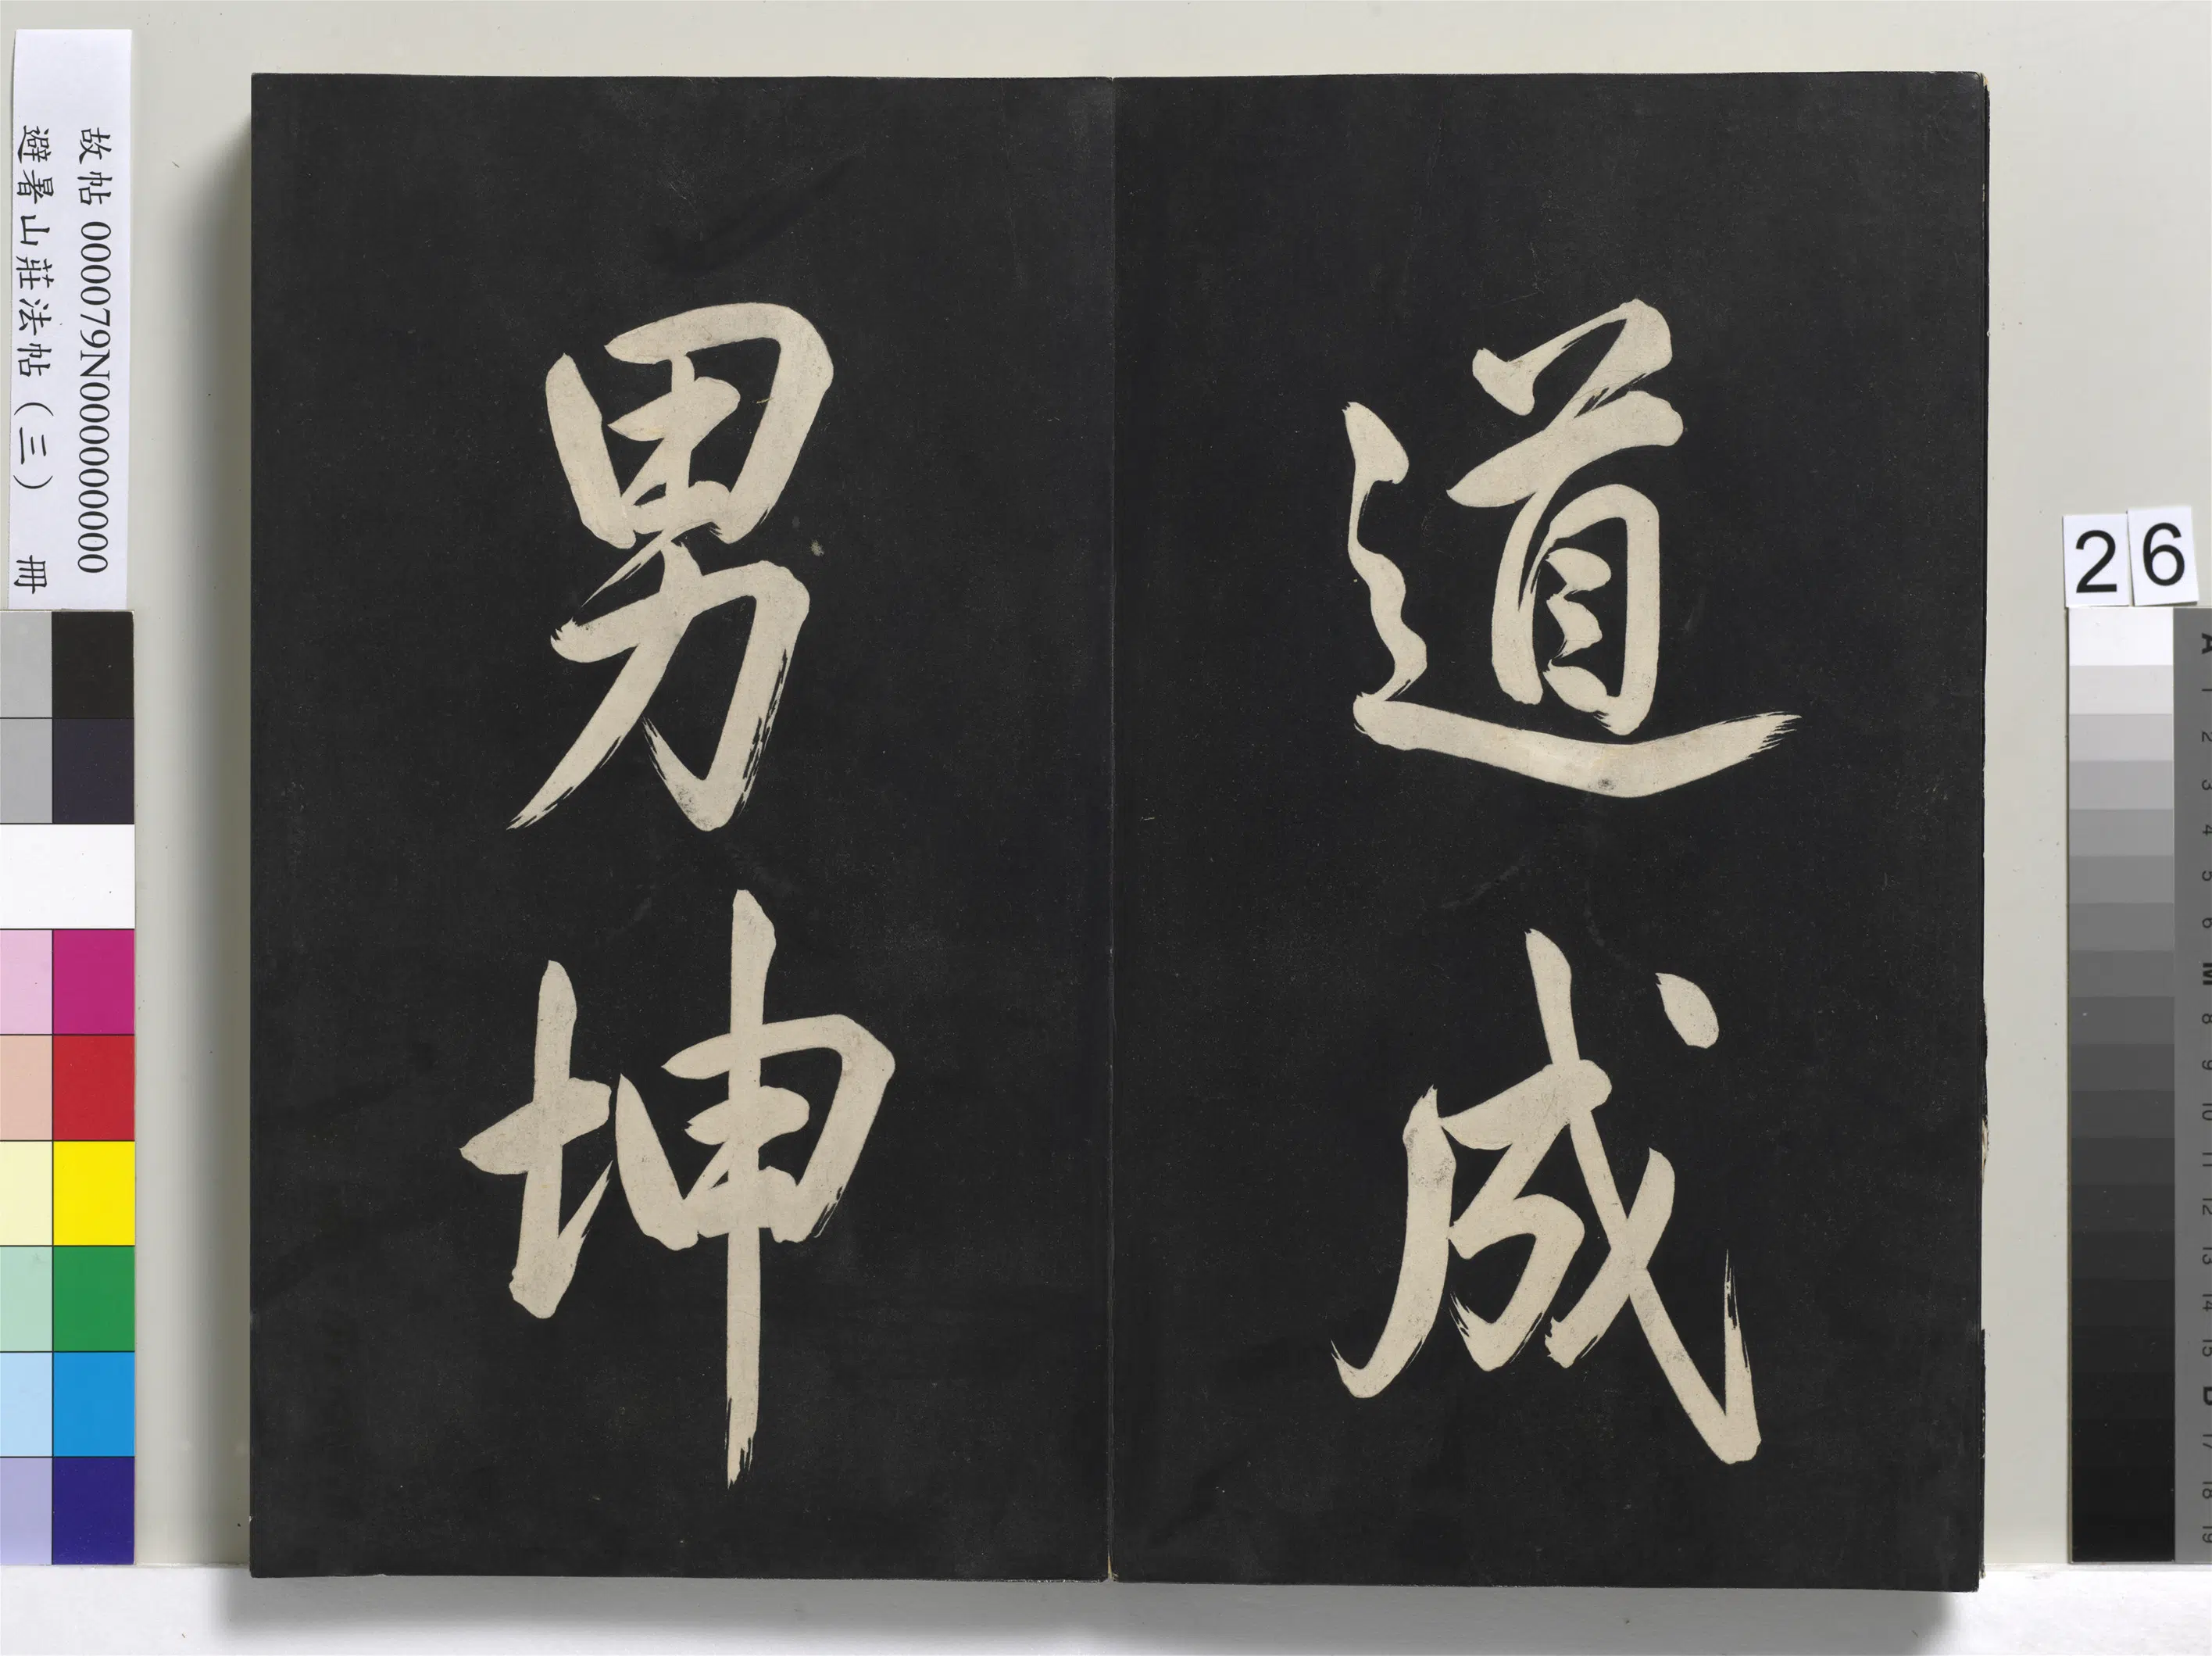 道成
男坤
故帖 000079N000000000
避暑山莊法帖（三） 冊
26
A
1
2
3
4
5
6
M
8
9
10
11
12
13
14
15
B
17
18
19